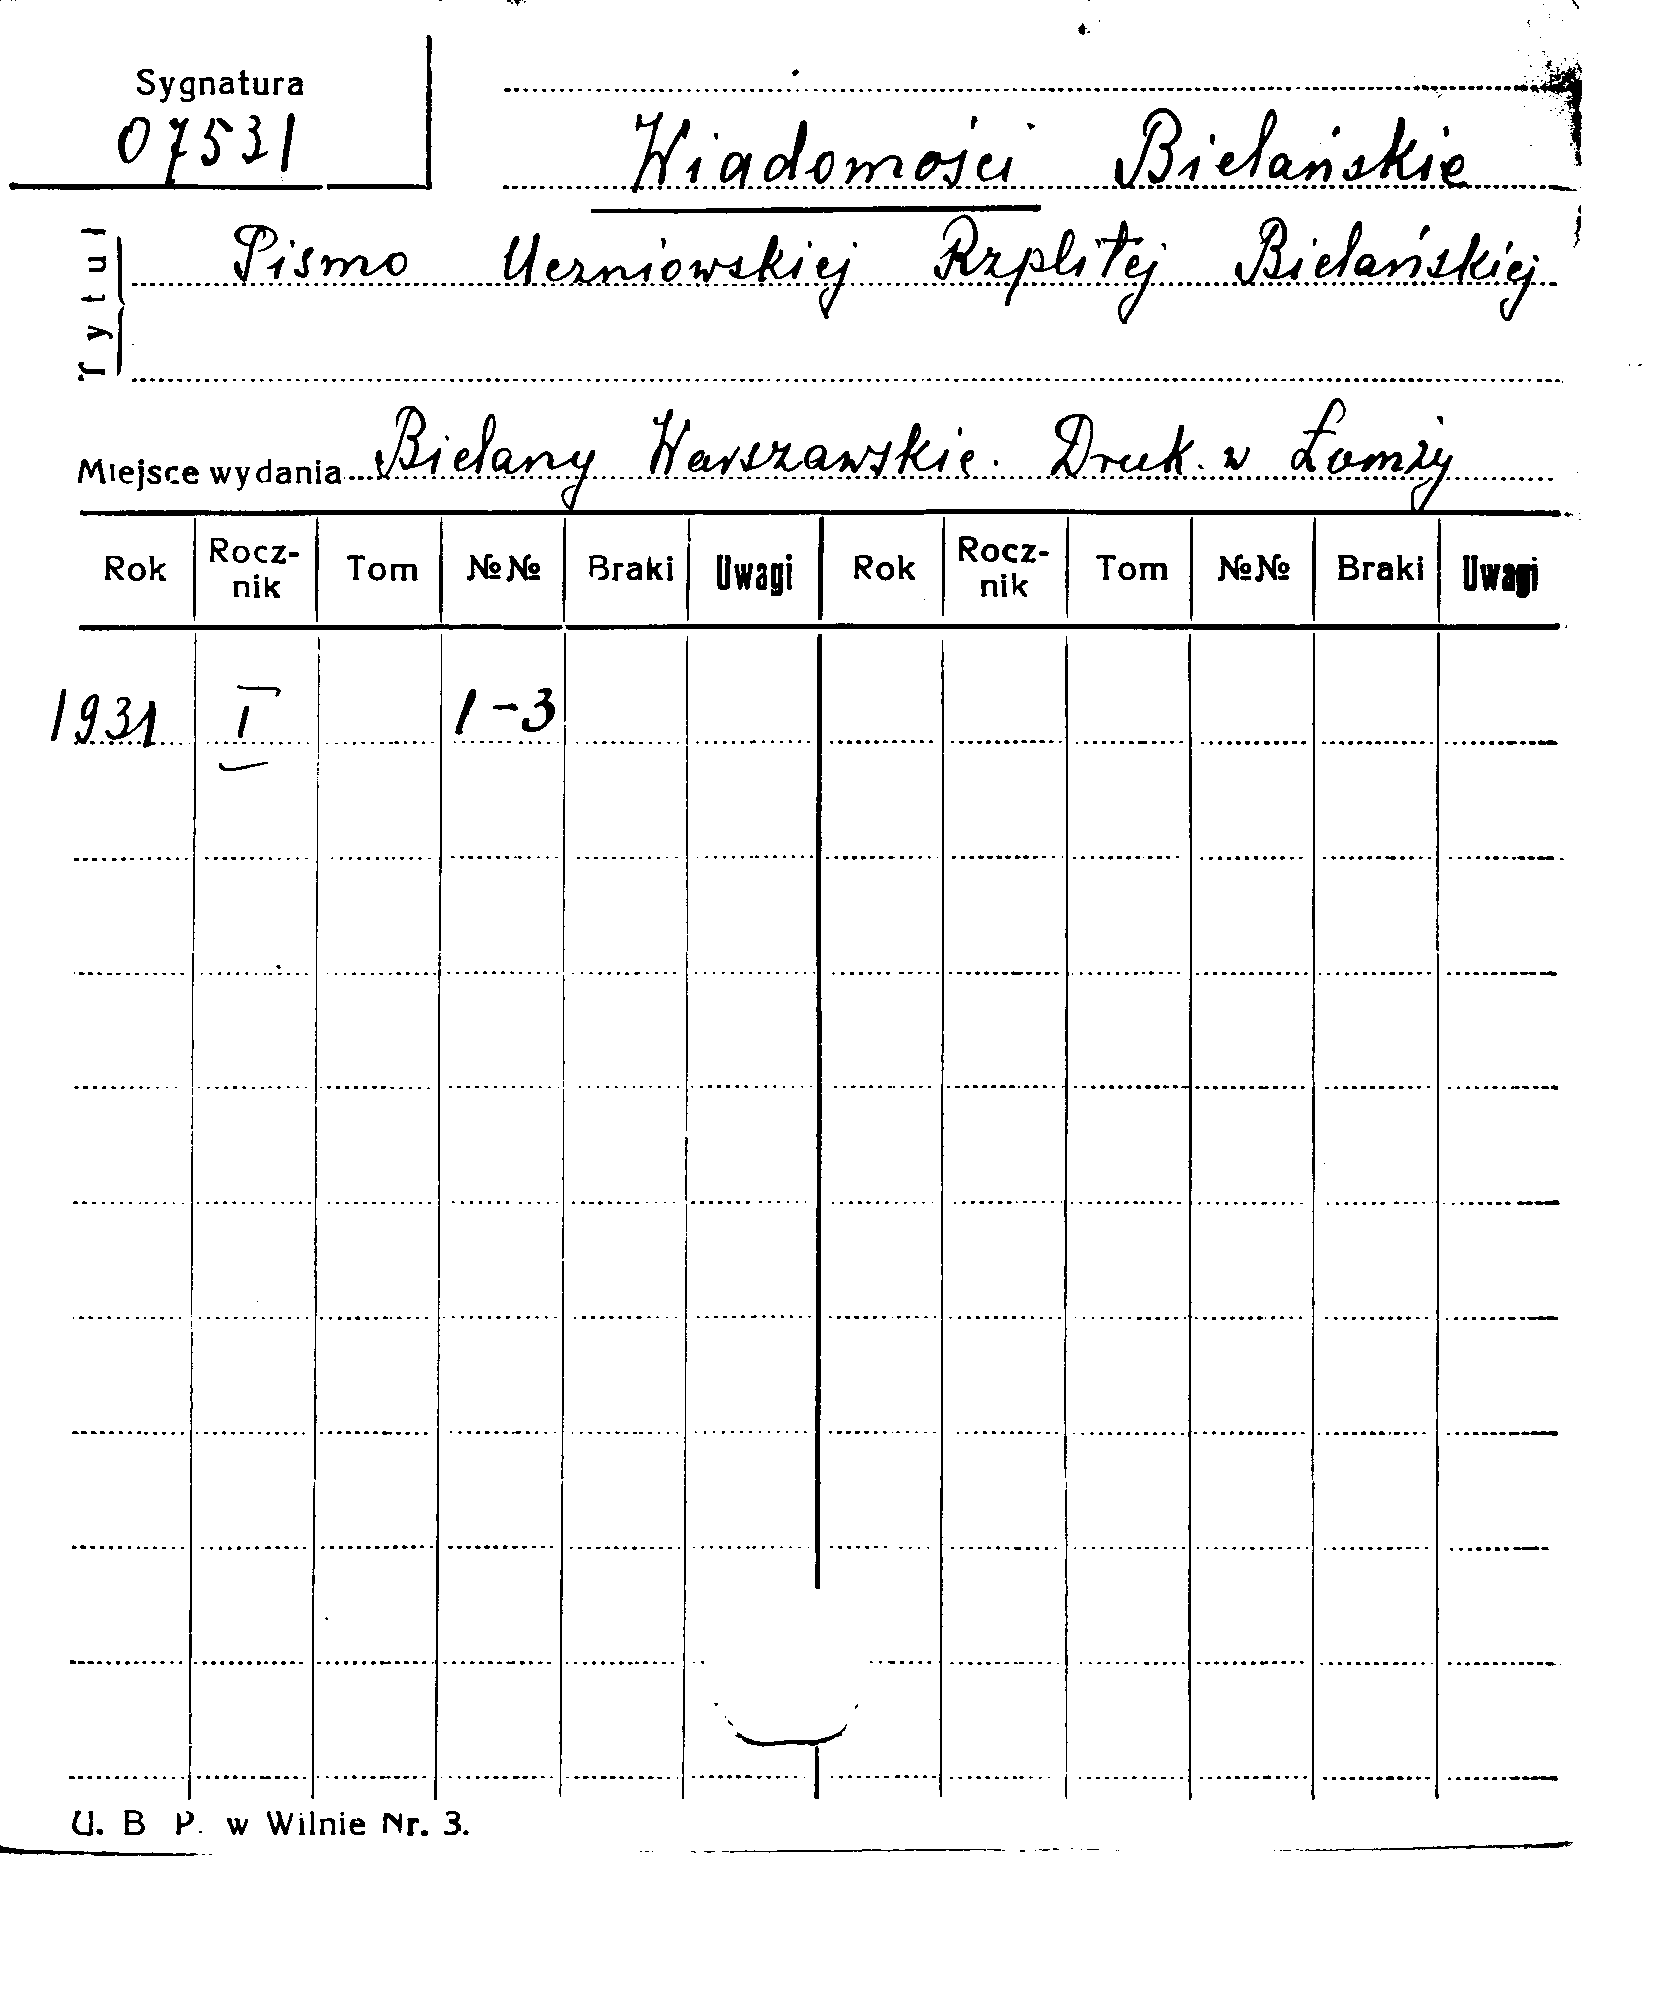 Sygnatura
07531
Wiadomości Bielańskie
Tytuł
Pismo Uczniowskiej Rzplitej Bielańskiej
Miejsce wydania Bielany Warszawskie. Druk. w Łomży
Rok Rocz- Tom №№ Braki Uwagi Rok Rocz- Tom №№ Braki Uwagi
nik nik
1931 I 1-3
U. B P. w Wilnie Nr. 3.